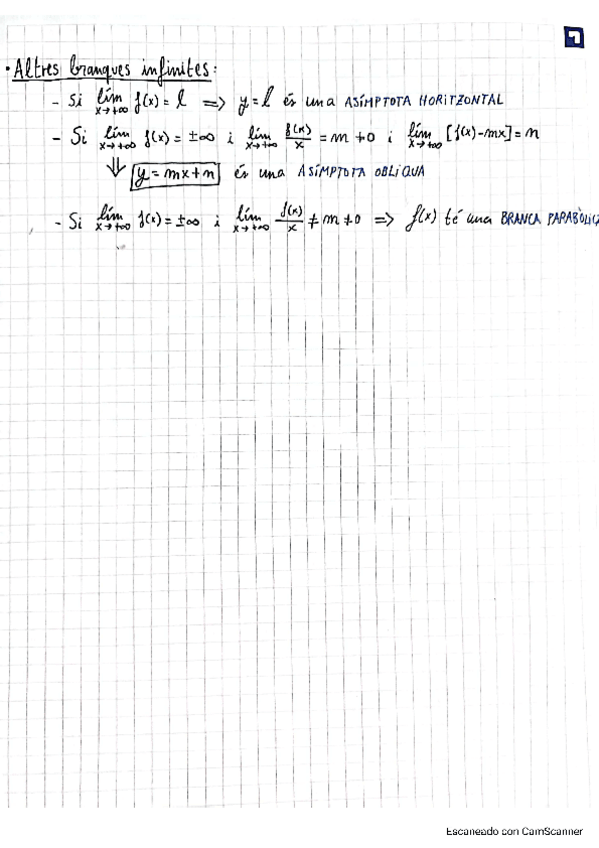 7
· Altres branques infinites:
- Si lím x→+∞ f(x) = l => y = l és una ASÍMPTOTA HORITZONTAL
- Si lím x→+∞ f(x) = ±∞ i lím x→+∞ f(x)/x = m ≠ 0 i lím x→+∞ [f(x)-mx] = n
⇓ y = mx+n és una ASÍMPTOTA OBLIQUA
- Si lím x→+∞ f(x) = ±∞ i lím x→+∞ f(x)/x ≠ m ≠ 0 => f(x) té una BRANCA PARABÒLIC
Escaneado con CamScanner